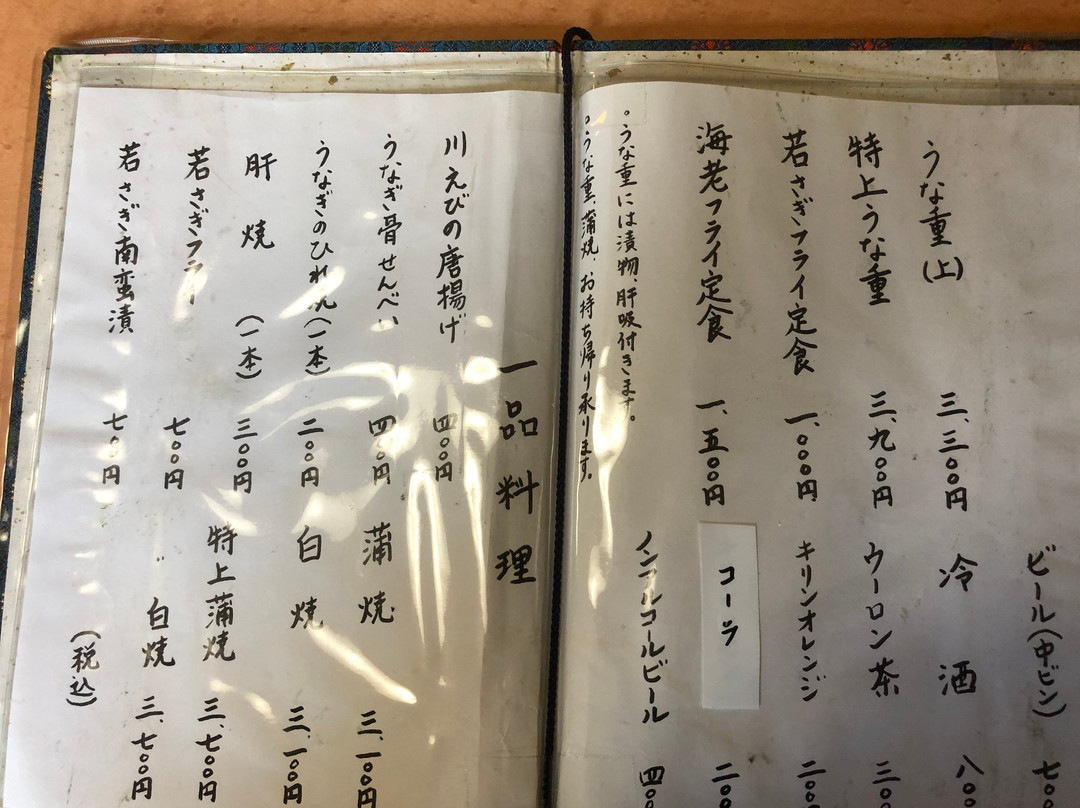 うな重(上) 三、三〇〇円
特上うな重 三、九〇〇円
若さぎフライ定食 一、〇〇〇円
海老フライ定食 一、五〇〇円
。うな重には漬物、肝吸付きます。
。うな重、蒲焼、お持ち帰り承ります。
ビール(中ビン) 七〇
冷酒 八〇〇
ウーロン茶 三〇〇
キリンオレンジ 二〇〇
コーラ 二〇
ノンアルコールビール 四〇〇
一品料理
川えびの唐揚げ 四〇〇円
うなぎ骨せんべい 四〇〇円
うなぎのひれ(一本) 二〇〇円
肝焼(一本) 三〇〇円
若さぎフライ 七〇〇円
若さぎ南蛮漬 七〇〇円
蒲焼 三、一〇〇円
白焼 三、一〇〇円
特上蒲焼 三、七〇〇円
〃 白焼 三、七〇〇円
(税込)